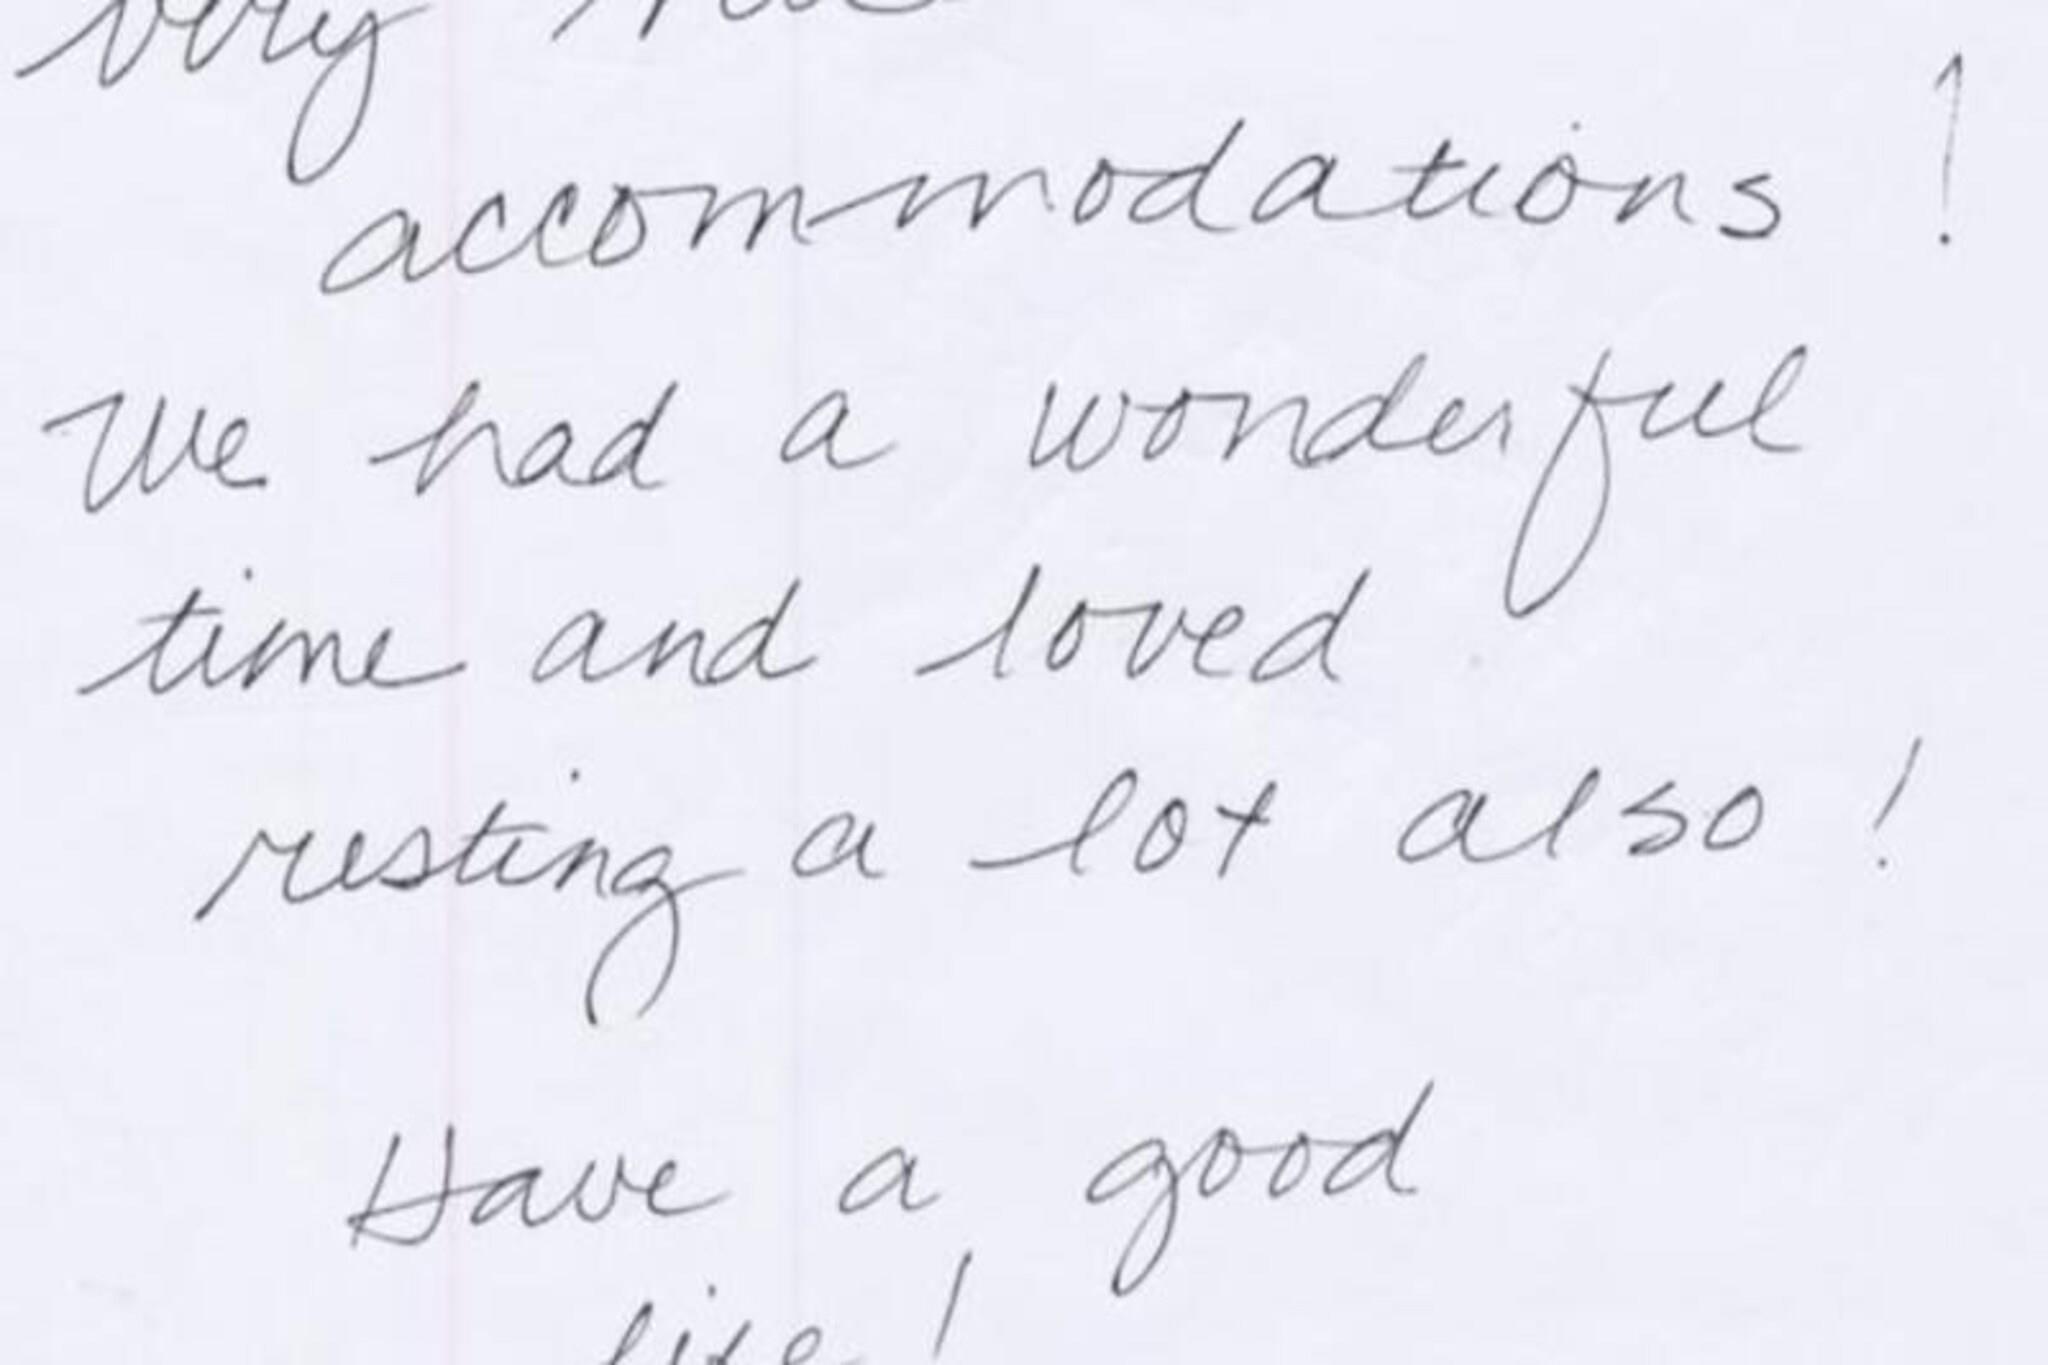 very
accommodations!
We had a wonderful
time and loved
resting a lot also!
Have a good
life!